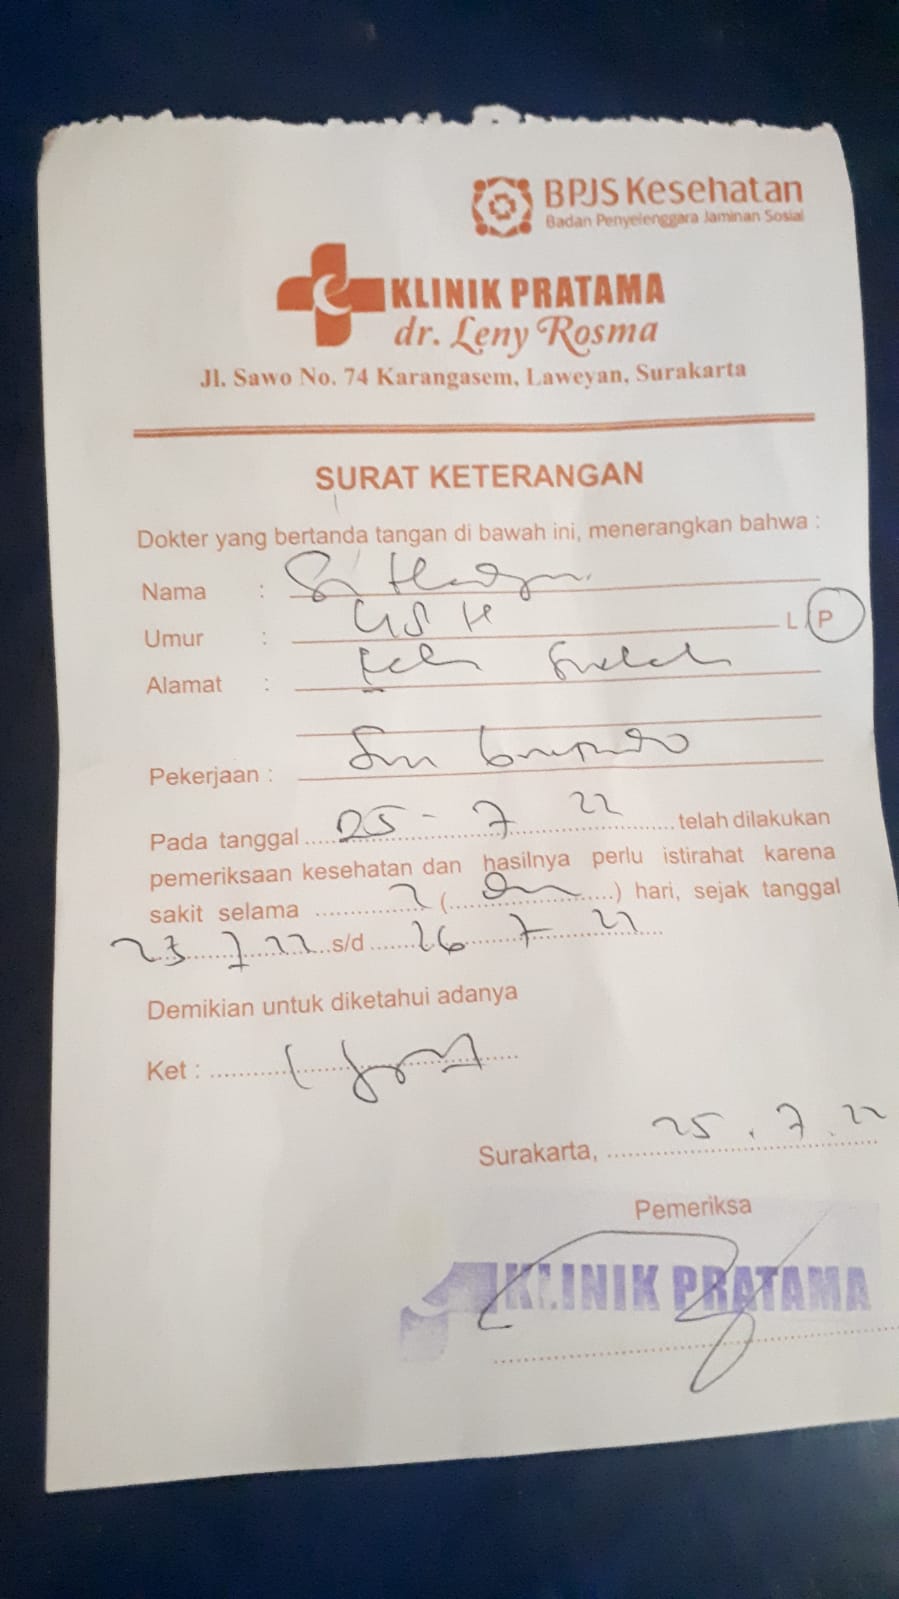 BPJS Kesehatan
Badan Penyelenggara Jaminan Sosial
KLINIK PRATAMA
dr. Leny Rosma
Jl. Sawo No. 74 Karangasem, Laweyan, Surakarta
SURAT KETERANGAN
Dokter yang bertanda tangan di bawah ini, menerangkan bahwa :
Nama :
Umur : L P
Alamat :
Pekerjaan :
Pada tanggal 25 - 7 22 telah dilakukan
pemeriksaan kesehatan dan hasilnya perlu istirahat karena
sakit selama 2 ( ) hari, sejak tanggal
7 22 s/d 26 7 22
Demikian untuk diketahui adanya
Ket :
Surakarta, 25 . 7 . 22
Pemeriksa
KLINIK PRATAMA